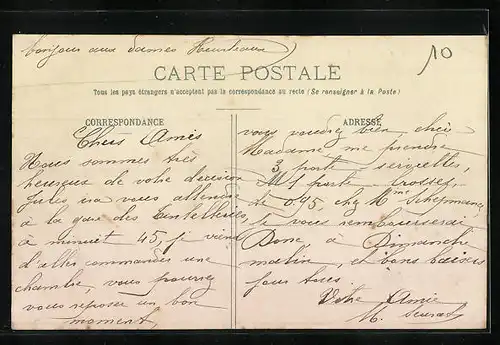 bonjour aux dames
10
CARTE POSTALE
Tous les pays étrangers n'acceptent pas la correspondance au recto (Se renseigner à la Poste)
CORRESPONDANCE
Chers Amis
Nous sommes très
heureux de votre décision
Jules ira vous attendre
à la gare des
à minuit 45, je viens
d'aller commander une
chambre, vous pourrez
vous reposer un bon
moment,
ADRESSE
vous voudrez bien, chère
Madame me prendre
3 porte serviettes,
et 1 porte brosses,
de 0.95 chez Mme
je vous rembourserai
Donc à Dimanche
matin, et bons baisers
pour tous.
Votre Amie
M.